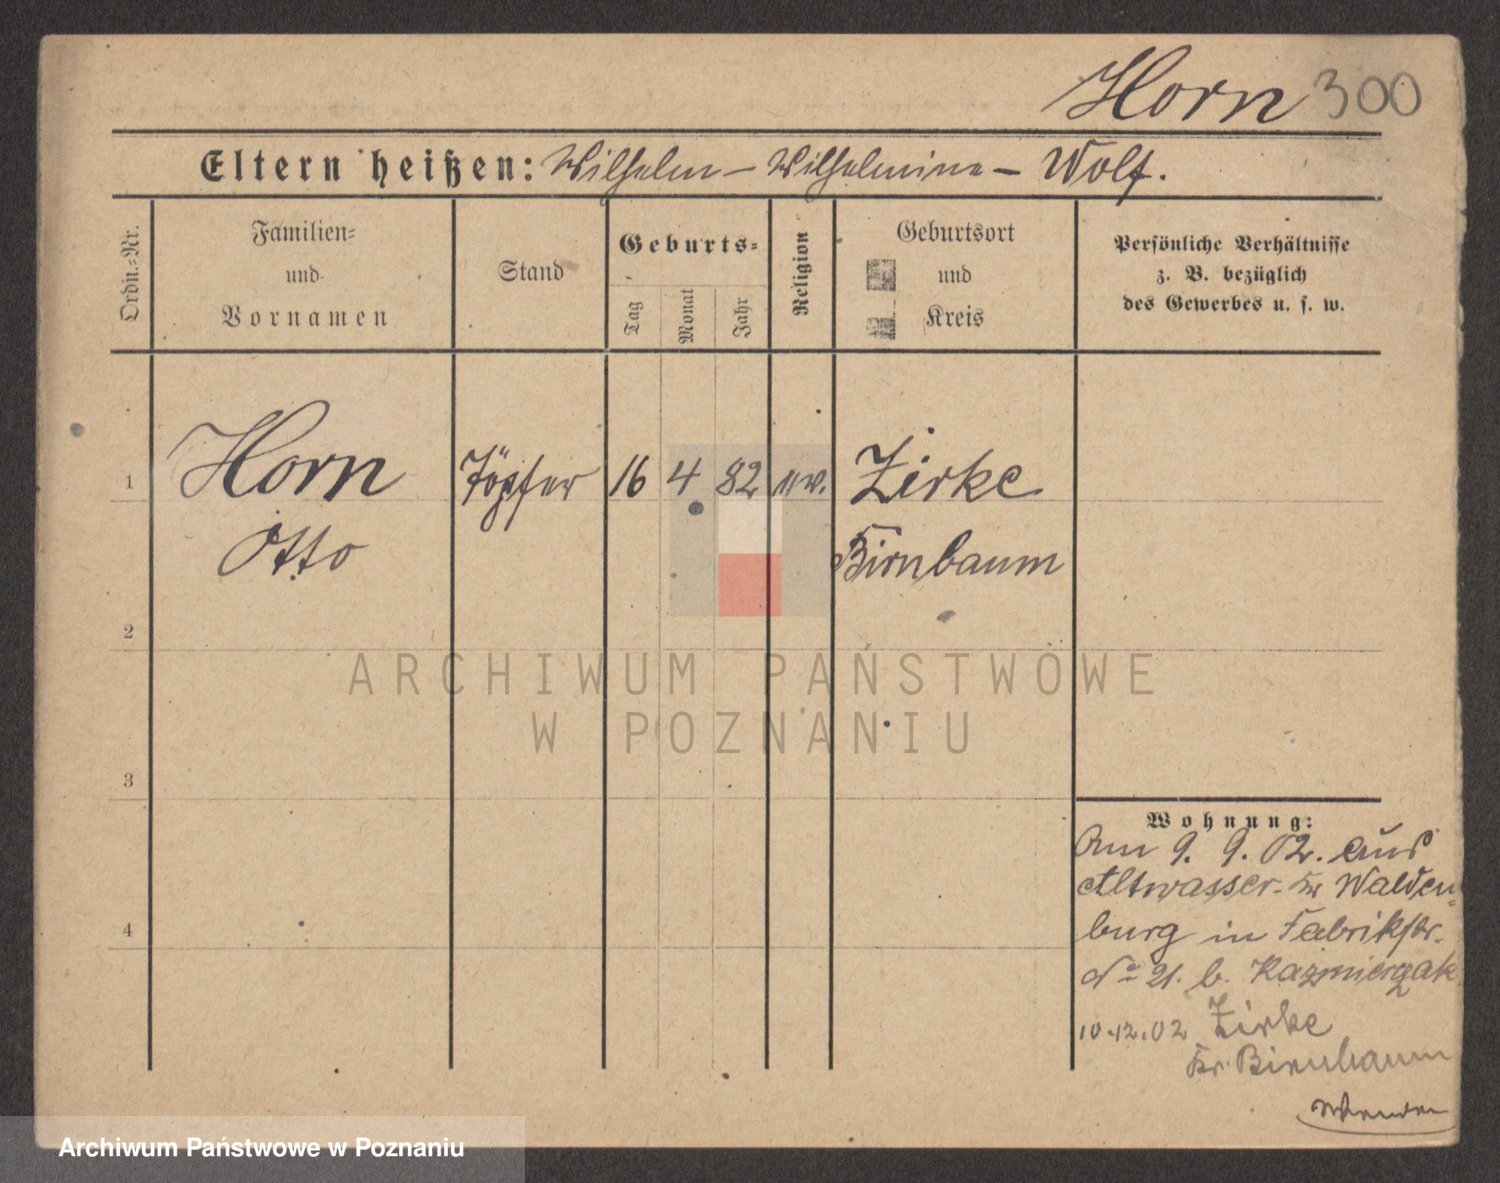 Horn 300
Eltern heißen: Wilhelm – Wilhelmine – Wolf.
Ordn.-Nr.
Familien-
und
Vornamen
Stand
Geburts-
Tag
Monat
Jahr
Religion
Geburtsort
und
Kreis
Persönliche Verhältnisse
z. B. bezüglich
des Gewerbes u. s. w.
1
Horn Töpfer 16 4 82 ev. Zirke
Otto Birnbaum
2
ARCHIWUM PAŃSTWOWE
W POZNANIU
3
Wohnung:
Am 9. 9. 02. aus
Altwasser- Kr Walden-
4
burg in Fabrikstr.
No 21. b. Kazmierzak
10.12.02 Zirke
Kr. Birnbaum
Wenden
Archiwum Państwowe w Poznaniu